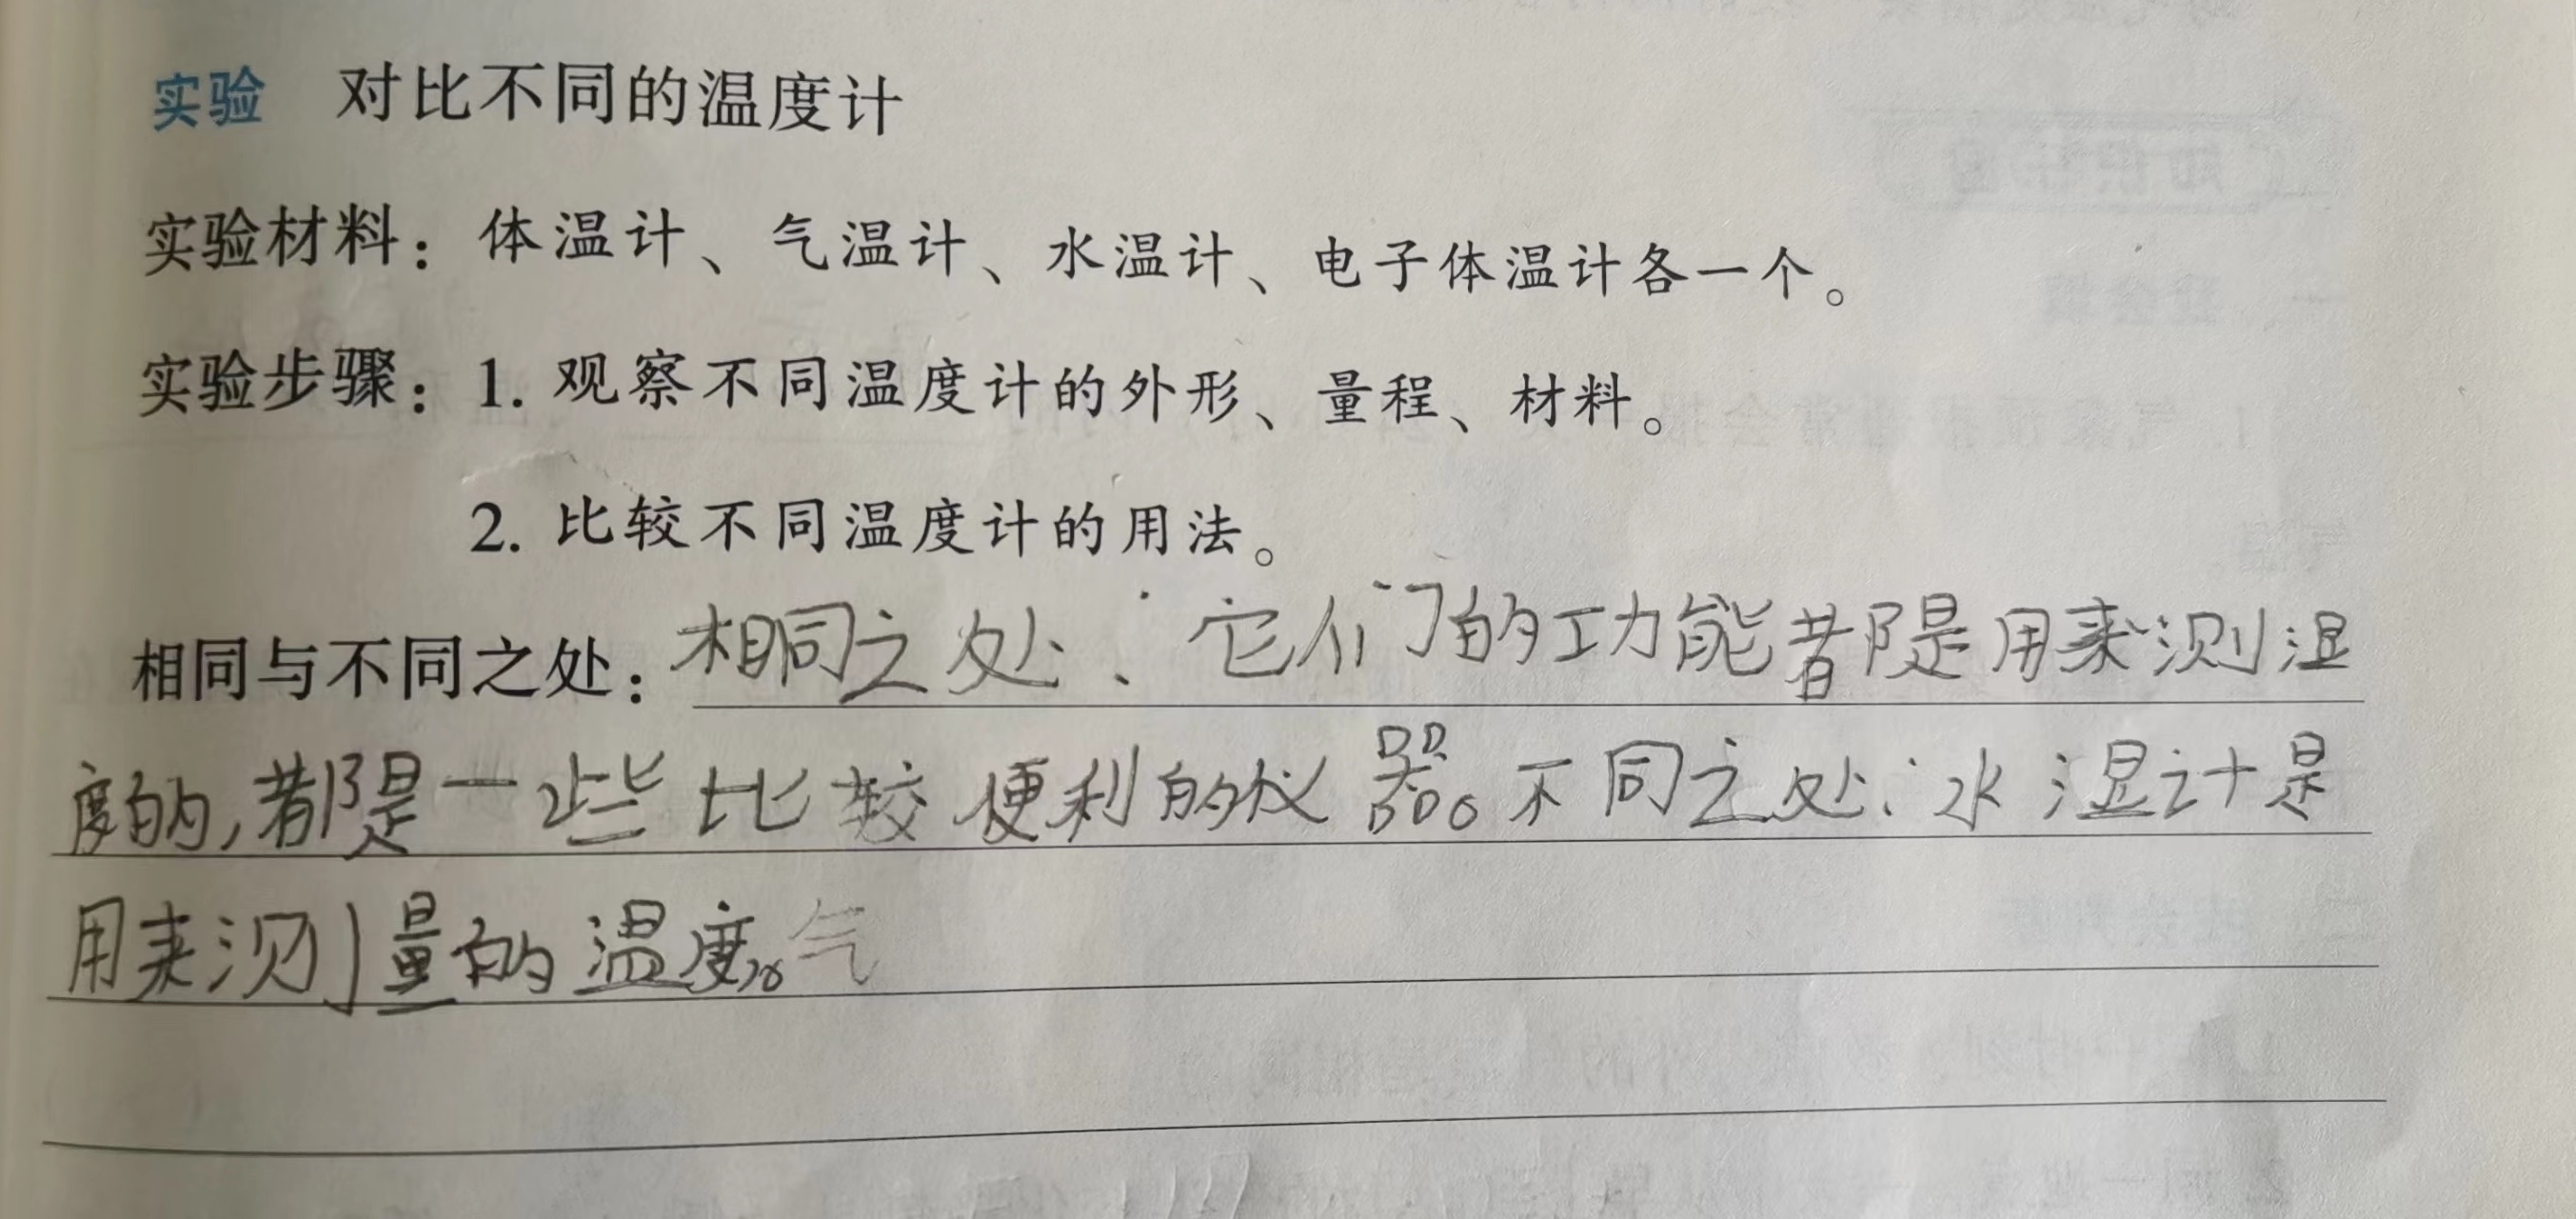 实验 对比不同的温度计
实验材料：体温计、气温计、水温计、电子体温计各一个。
实验步骤：1. 观察不同温度计的外形、量程、材料。
2. 比较不同温度计的用法。
相同与不同之处：相同之处：它们的功能都是用来测温
度的，都是一些比较便利的仪器。不同之处：水温计是
用来测量的温度。气